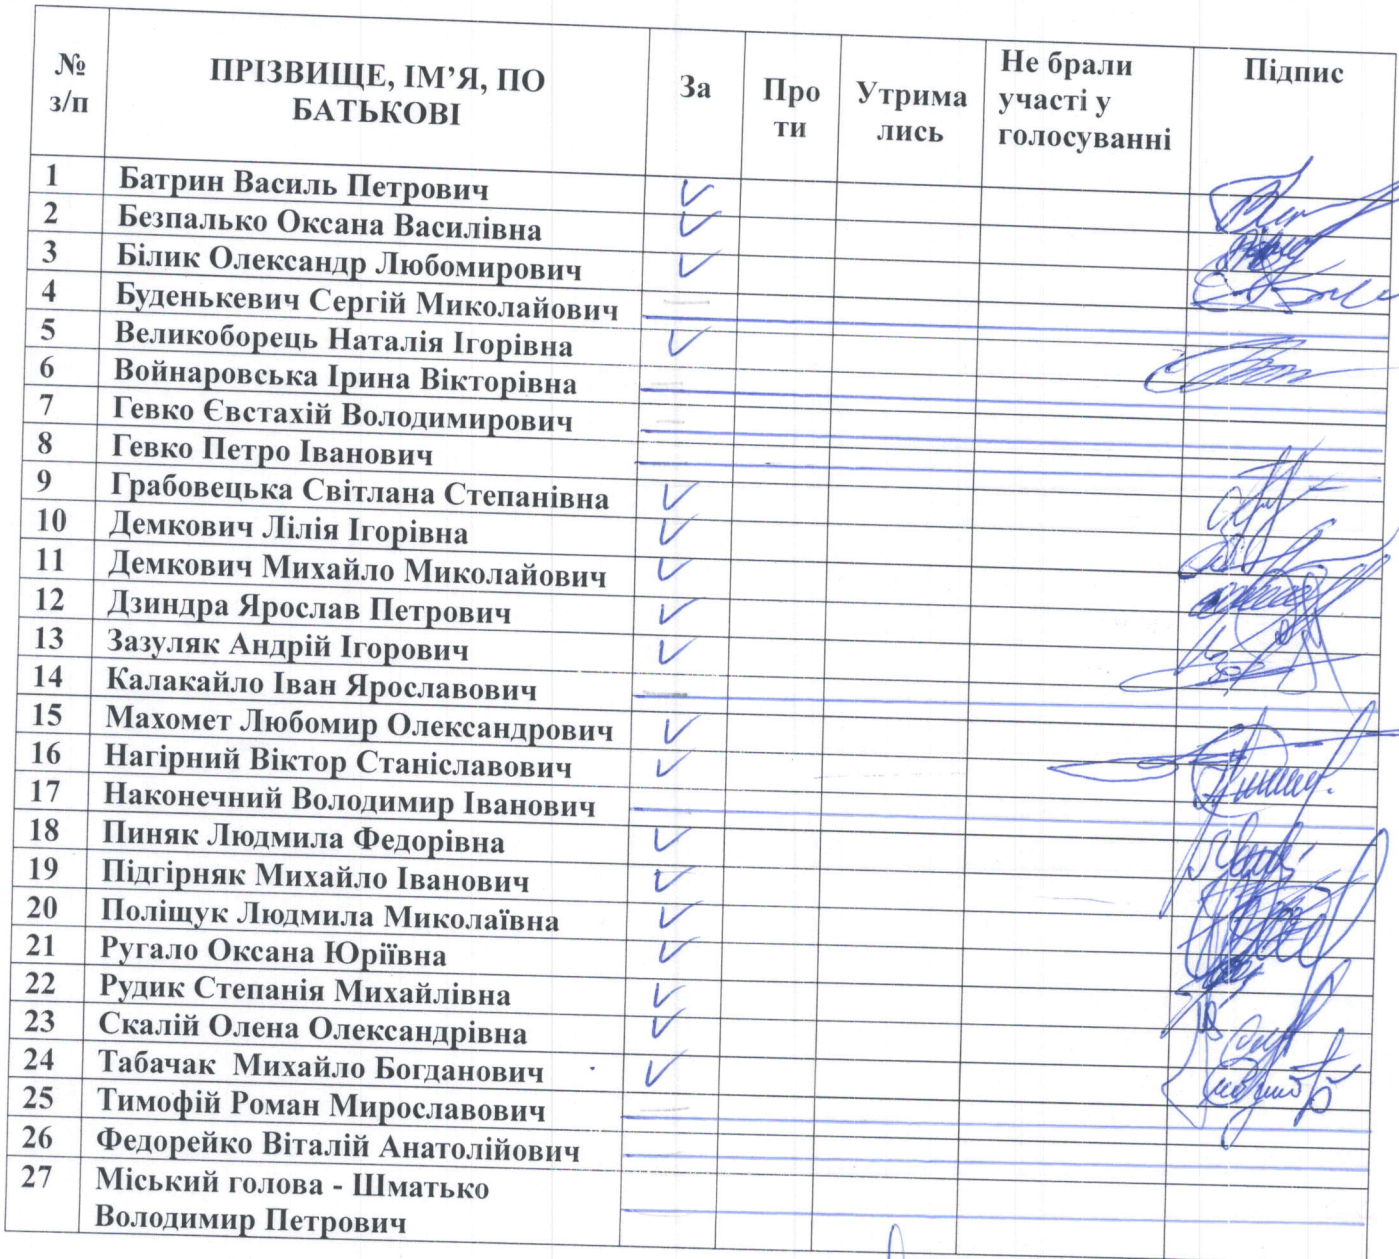 № з/п
ПРІЗВИЩЕ, ІМ’Я, ПО БАТЬКОВІ
За
Про
ти
Утрима
лись
Не брали
участі у
голосуванні
Підпис
1 Батрин Василь Петрович ✓
2 Безпалько Оксана Василівна ✓
3 Білик Олександр Любомирович ✓
4 Буденькевич Сергій Миколайович
5 Великоборець Наталія Ігорівна ✓
6 Войнаровська Ірина Вікторівна
7 Гевко Євстахій Володимирович
8 Гевко Петро Іванович
9 Грабовецька Світлана Степанівна ✓
10 Демкович Лілія Ігорівна ✓
11 Демкович Михайло Миколайович ✓
12 Дзиндра Ярослав Петрович ✓
13 Зазуляк Андрій Ігорович ✓
14 Калакайло Іван Ярославович
15 Махомет Любомир Олександрович ✓
16 Нагірний Віктор Станіславович ✓
17 Наконечний Володимир Іванович
18 Пиняк Людмила Федорівна ✓
19 Підгірняк Михайло Іванович ✓
20 Поліщук Людмила Миколаївна ✓
21 Ругало Оксана Юріївна ✓
22 Рудик Степанія Михайлівна ✓
23 Скалій Олена Олександрівна ✓
24 Табачак Михайло Богданович ✓
25 Тимофій Роман Мирославович
26 Федорейко Віталій Анатолійович
27 Міський голова - Шматько
Володимир Петрович